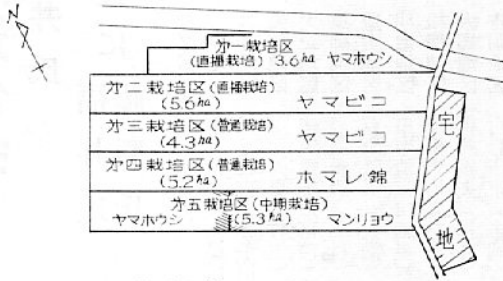 N
才一栽培区
(直播栽培) 3.6ha ヤマホウシ
才二栽培区(直播栽培)
(5.6ha) ヤマビコ
才三栽培区(普通栽培)
(4.3ha) ヤマビコ
才四栽培区(普通栽培)
(5.2ha) ホマレ錦
才五栽培区(中期栽培)
ヤマホウシ (5.3ha) マンリョウ
宅
地